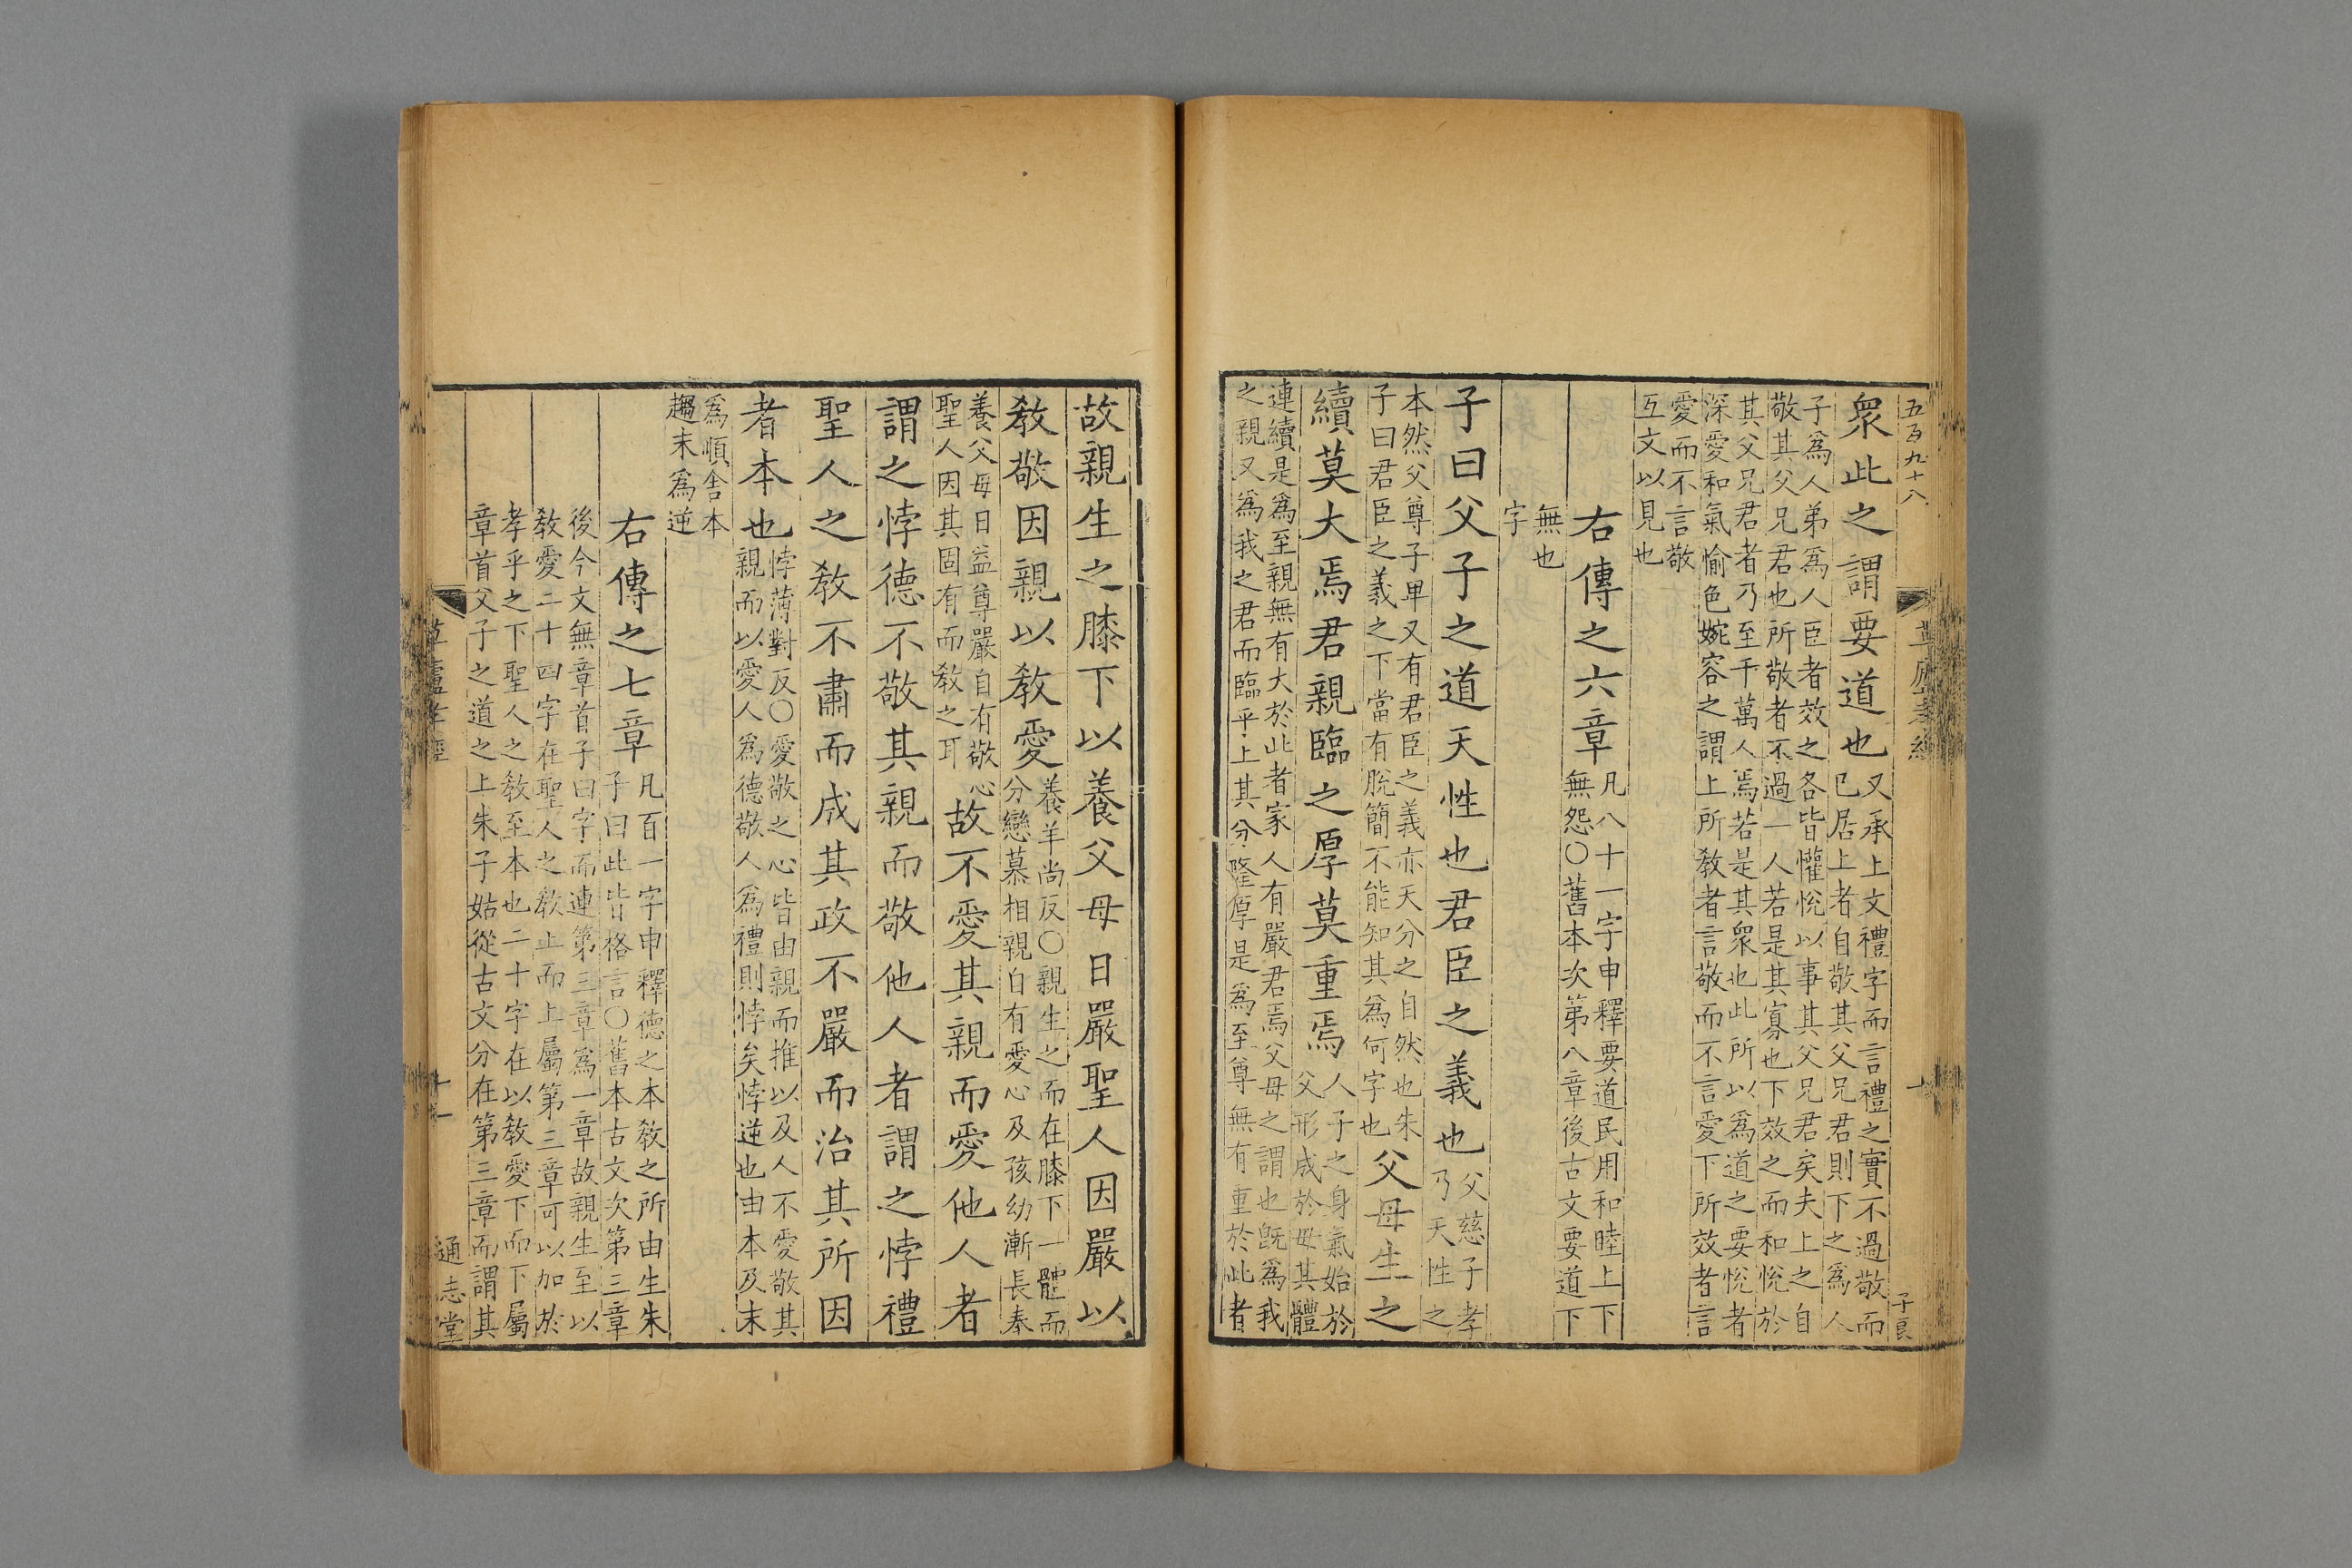 五百九十八
衆此之謂要道也又承上文禮字而言禮之實不過敬而
已居上者自敬其父兄君則下之爲人
子爲人弟爲人臣者效之各皆懽悅以事其父兄君矣夫上之自
敬其父兄君也所敬者不過一人若是其寡也下效之而和悅於
其父兄君者乃至千萬人焉若是其衆也此所以爲道之要悅者
深愛和氣愉色婉容之謂上所敎者言敬而不言愛下所效者言
愛而不言敬
互文以見也
右傳之六章凡八十一字申釋要道民用和睦上下
無怨○舊本次第八章後古文要道下
無也
字
子曰父子之道天性也君臣之義也父慈子孝
乃天性之
本然父尊子卑又有君臣之義亦天分之自然也朱
子曰君臣之義之下當有脫簡不能知其爲何字也父母生之
續莫大焉君親臨之厚莫重焉人子之身氣始於
父形成於母其體
連續是爲至親無有大於此者家人有嚴君焉父母之謂也旣爲我
之親又爲我之君而臨乎上其分隆厚是爲至尊無有重於此者
子良
草廬孝經
十一
故親生之膝下以養父母日嚴聖人因嚴以
敎敬因親以敎愛養羊尚反○親生之而在膝下一體而
分戀慕相親自有愛心及孩幼漸長奉
養父母日益尊嚴自有敬心
聖人因其固有而敎之耳故不愛其親而愛他人者
謂之悖德不敬其親而敬他人者謂之悖禮
聖人之敎不肅而成其政不嚴而治其所因
者本也悖薄對反○愛敬之心皆由親而推以及人不愛敬其
親而以愛人爲德敬人爲禮則悖矣悖逆也由本及末
爲順舍本
趨末爲逆
右傳之七章凡百一字申釋德之本敎之所由生朱
子曰此皆格言○舊本古文次第三章
後今文無章首子曰字而連第三章爲一章故親生至以
敎愛二十四字在聖人之敎止而上屬第三章可以加於
孝乎之下聖人之敎至本也二十字在以敎愛下而下屬
章首父子之道之上朱子姑從古文分在第三章而謂其
草廬孝經
十一
通志堂